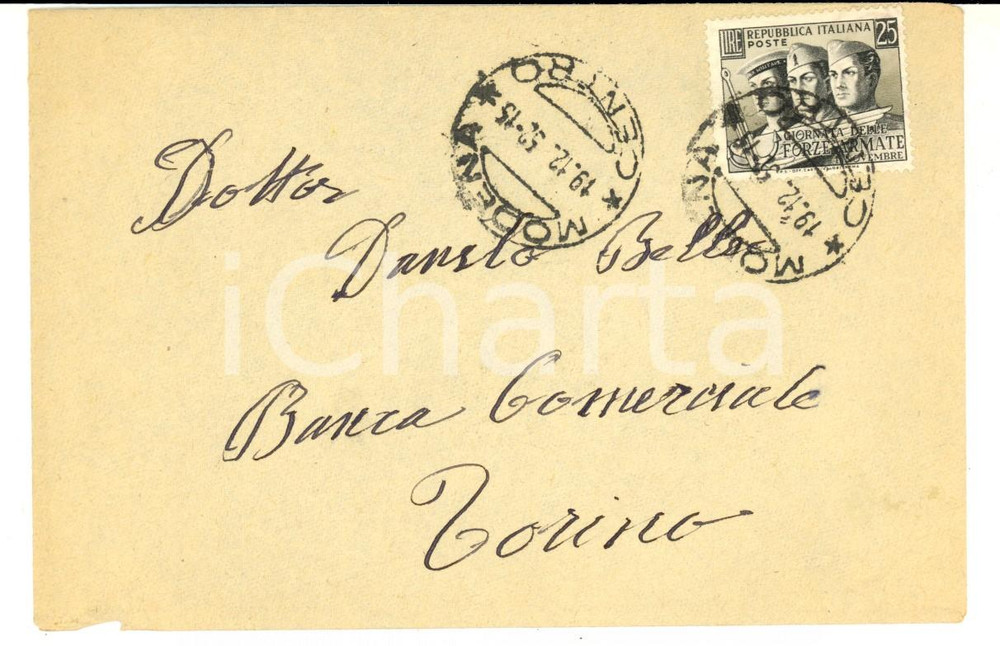 LIRE REPUBBLICA ITALIANA 25
POSTE
GIORNATA DELLE
FORZE ARMATE
NOVEMBRE
MODENA * CENTRO *
19.12.52-15
MODENA * CENTRO *
19.12.52
Dottor
Danilo Bello
Banca Comerciale
Torino
iCharta